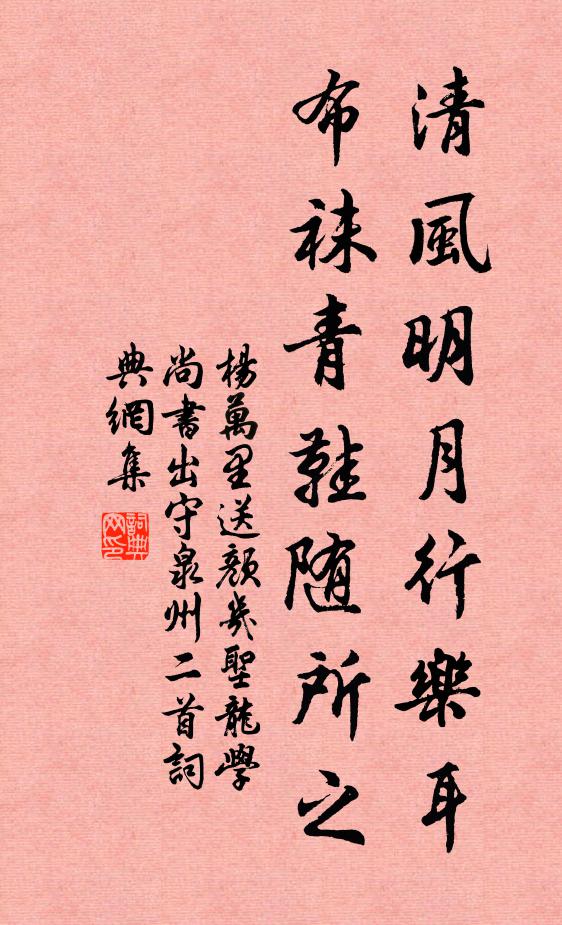 清風明月行樂耳
布袜青鞋随所之
楊萬里送顏幾聖龍學
尚書出守泉州二首詞
典網集
詞典
网印